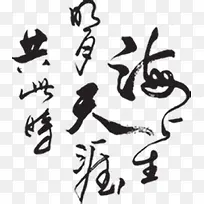 海上生
明月
天涯
共此時